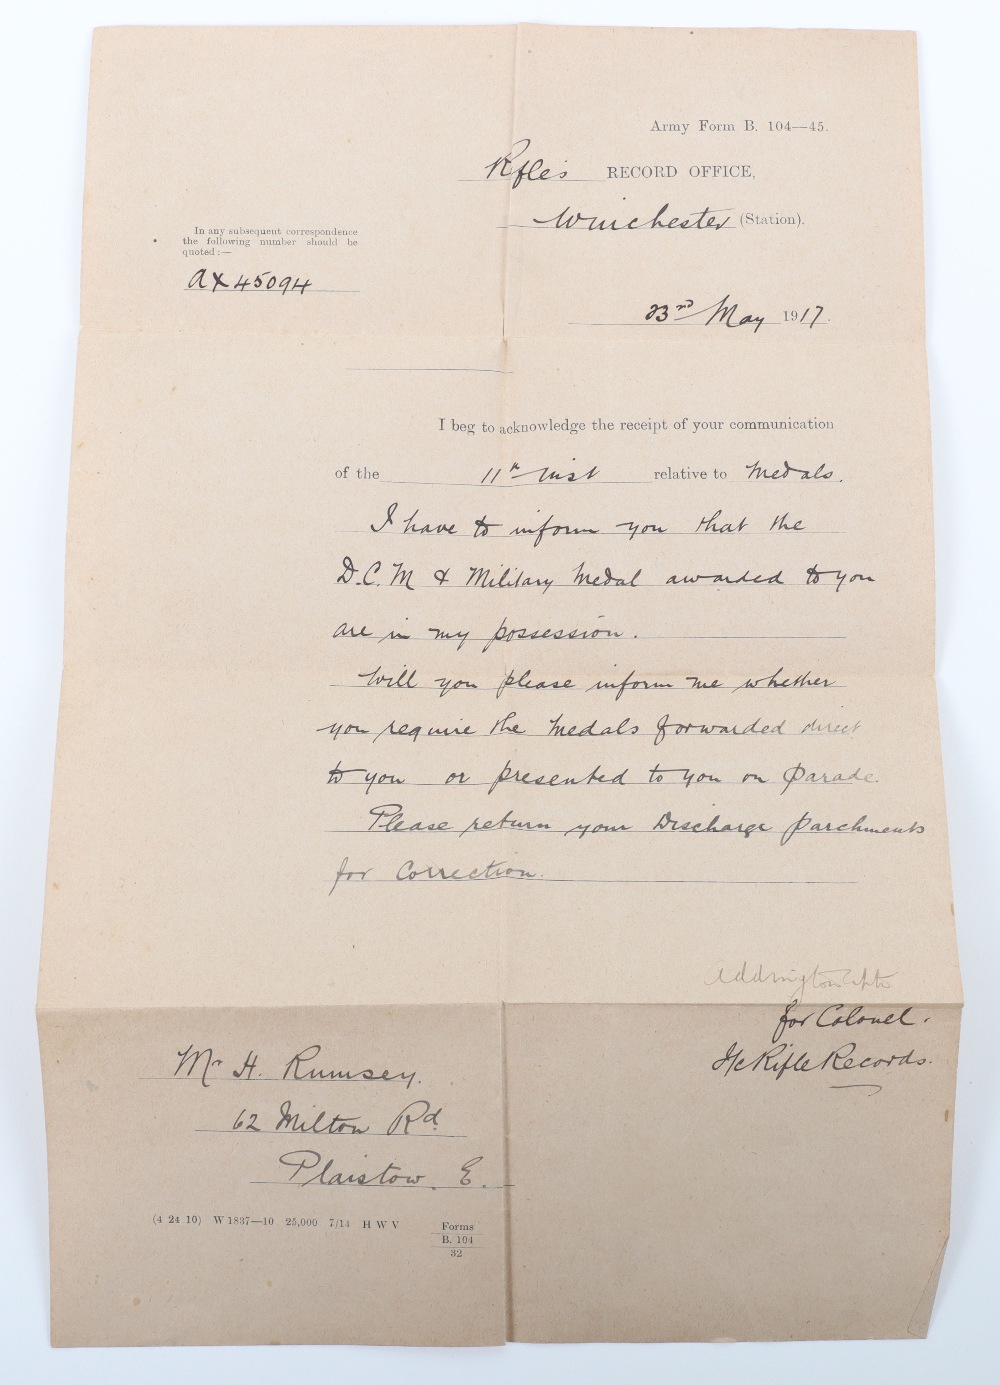 Army Form B. 104—45.
Rifles RECORD OFFICE,
Winchester (Station).
In any subsequent correspondence
the following number should be
quoted :—
AX45094
23rd May 1917.
I beg to acknowledge the receipt of your communication
of the 11th inst relative to Medals.
I have to inform you that the
D.C.M & Military Medal awarded to you
are in my possession.
Will you please inform me whether
you require the Medals forwarded direct
to you or presented to you on Parade.
Please return your Discharge Parchments
for Correction.
for Colonel.
I/c Rifle Records.
Mr H. Rumsey.
62 Milton Rd
Plaistow. E.
(4 24 10) W 1837—10 25,000 7/14 H W V
Forms
B. 104
32